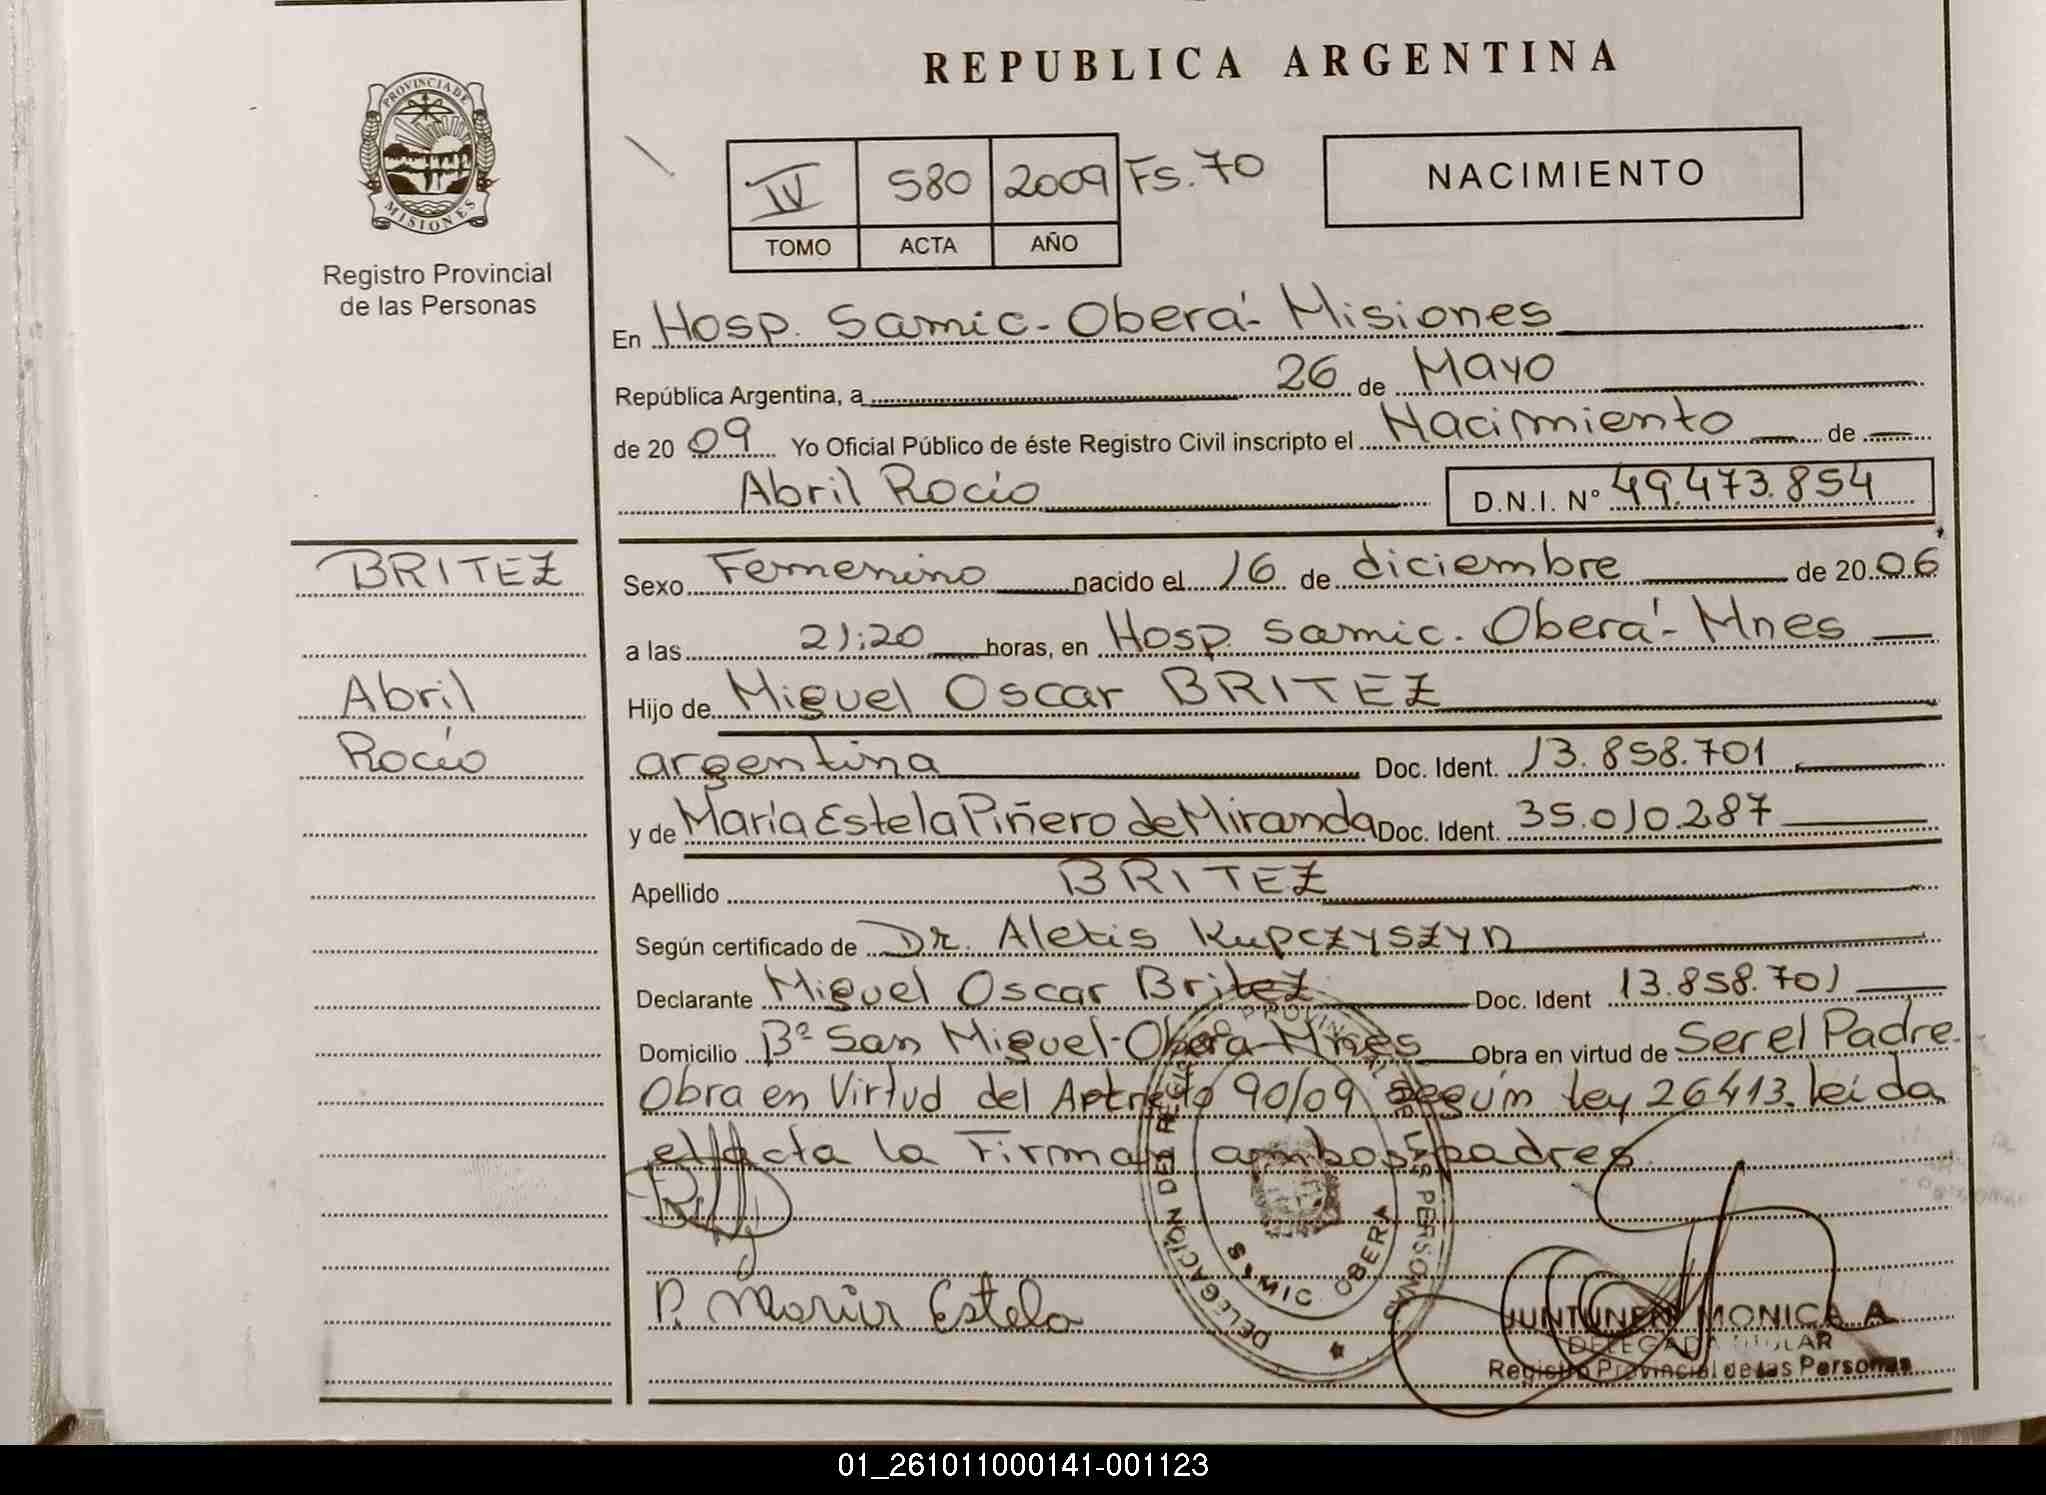 REPUBLICA ARGENTINA
PROVINCIA DE
MISIONES
Registro Provincial
de las Personas
IV 580 2009 Fs. 70
TOMO ACTA AÑO
NACIMIENTO
En Hosp. Samic - Oberá - Misiones
República Argentina, a 26 de Mayo
de 2009 Yo Oficial Público de éste Registro Civil inscripto el Nacimiento de
Abril Rocío D.N.I. Nº 49.473.854
BRITEZ
Abril
Rocío
Sexo Femenino nacido el 16 de diciembre de 2006
a las 21:20 horas, en Hosp. Samic. Oberá - Mnes
Hijo de Miguel Oscar BRITEZ
argentina Doc. Ident. 13.858.701
y de María Estela Piñero de Miranda Doc. Ident. 35.010.287
Apellido BRITEZ
Según certificado de Dr. Alexis Kupczyszyn
Declarante Miguel Oscar Britez Doc. Ident 13.858.701
Domicilio Bº San Miguel - Oberá - Mnes Obra en virtud de Ser el Padre.
Obra en Virtud del 90/09 según ley 26413. leída
el Acta la Firman ambos padres.
P. María Estela
DELEGACION DEL REGISTRO PROVINCIAL DE LAS PERSONAS
SAMIC OBERA
JUNTUNEN MONICA A
DELEGADA TITULAR
Registro Provincial de las Personas
01_261011000141-001123